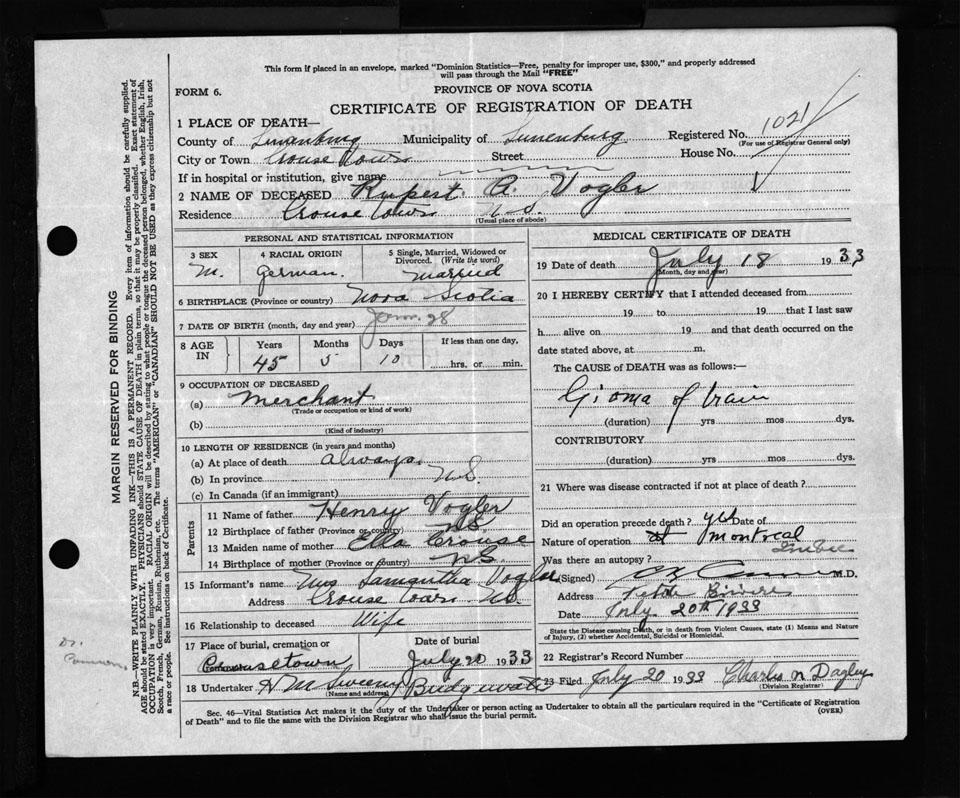 This form if placed in an envelope, marked "Dominion Statistics—Free, penalty for improper use, $300," and properly addressed
will pass through the Mail "FREE"
FORM 6.
PROVINCE OF NOVA SCOTIA
CERTIFICATE OF REGISTRATION OF DEATH
1 PLACE OF DEATH—
County of Lunenburg Municipality of Lunenburg Registered No. 1021
(For use of Registrar General only)
City or Town Crouse Town Street House No.
If in hospital or institution, give name
2 NAME OF DECEASED Rupert A. Vogler
Residence Crouse Town N.S.
(Usual place of abode)
PERSONAL AND STATISTICAL INFORMATION
3 SEX 4 RACIAL ORIGIN 5 Single, Married, Widowed or Divorced. (Write the word)
M. German. Married
6 BIRTHPLACE (Province or country) Nova Scotia
7 DATE OF BIRTH (month, day and year) Jan. 28
8 AGE IN Years Months Days If less than one day,
45 5 10 hrs. or min.
9 OCCUPATION OF DECEASED
(a) Merchant
(Trade or occupation or kind of work)
(b)
(Kind of industry)
10 LENGTH OF RESIDENCE (in years and months)
(a) At place of death always.
(b) In province N.S.
(c) In Canada (if an immigrant)
Parents
11 Name of father Henry Vogler
12 Birthplace of father (Province or country) N.S.
13 Maiden name of mother Ella Crouse
14 Birthplace of mother (Province or country) N.S
15 Informant's name Mrs Samantha Vogler
Address Crouse Town N.S.
16 Relationship to deceased Wife
17 Place of burial, cremation or Date of burial
Crousetown July 20 1933
18 Undertaker H M Sweeny Bridgewater
(Name and address)
MEDICAL CERTIFICATE OF DEATH
19 Date of death July 18 1933
(Month, day and year)
20 I HEREBY CERTIFY that I attended deceased from
19 to 19 that I last saw
h alive on 19 and that death occurred on the
date stated above, at m.
The CAUSE of DEATH was as follows:—
Glioma of brain
(duration) yrs mos dys.
CONTRIBUTORY
(duration) yrs mos dys.
21 Where was disease contracted if not at place of death?
Did an operation precede death? yes Date of
Nature of operation at Montreal
Was there an autopsy?
(Signed) M.D.
Address Petite Riviere
Date July 20th 1933
State the Disease causing Death, or in death from Violent Causes, state (1) Means and Nature
of Injury, (2) whether Accidental, Suicidal or Homicidal.
22 Registrar's Record Number
23 Filed July 20 1933 Charles N Dagley
(Division Registrar)
Sec. 46—Vital Statistics Act makes it the duty of the Undertaker or person acting as Undertaker to obtain all the particulars required in the "Certificate of Registration
of Death" and to file the same with the Division Registrar who shall issue the burial permit.
(OVER)
MARGIN RESERVED FOR BINDING
N.B.—WRITE PLAINLY WITH UNFADING INK—THIS IS A PERMANENT RECORD. Every item of information should be carefully supplied.
AGE should be stated EXACTLY. PHYSICIANS should STATE CAUSE OF DEATH in plain terms, so that it may be properly classified. Exact statement of
OCCUPATION is very important. RACIAL ORIGIN will be described by stating to what people or tongue the deceased person belonged, whether English, Irish,
Scotch, French, German, Russian, Ruthenian, etc. The terms "AMERICAN" or "CANADIAN" SHOULD NOT BE USED as they express citizenship but not
a race or people. See instructions on back of Certificate.
Dr.